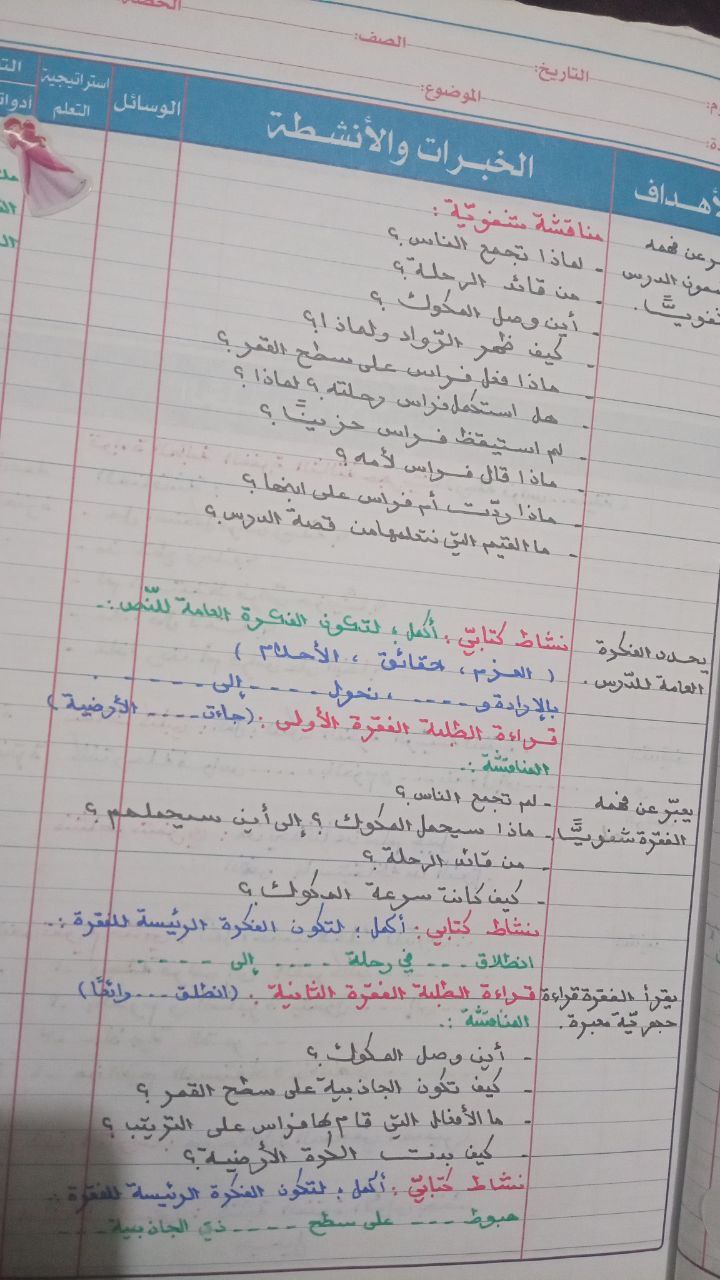 الحصة
الصف:
التاريخ:
الموضوع:
الأهداف
الخبرات والأنشطة
الوسائل
استراتيجية التعلم
عن فهمه
الدرس
مناقشة شفوية:
- لماذا تجمع الناس؟
- من قائد الرحلة؟
- أين وصل المكوك؟
- كيف ظهر الرّواد ولماذا؟
- ماذا فعل فراس على سطح القمر؟
- هل استكمل فراس رحلته؟ لماذا؟
- لم استيقظ فراس حزينًا؟
- ماذا قال فراس لأمه؟
- ماذا ردّت أم فراس على ابنها؟
- ما القيم التي نتعلمها من قصة الدرس؟
يحدد الفكرة
العامة للدرس.
نشاط كتابيّ: أكمل؛ لتكون الفكرة العامة للنّص:.
( العزم، حقائق، الأحلام )
بالإرادة و ----، نحول ---- إلى -----.
قراءة الطلبة الفقرة الأولى: (جاءت---- الأرضية)
المناقشة:.
يعبّر عن فهمه
الفقرة شفويًّا
- لم تجمع الناس؟
- ماذا سيحمل المكوك؟ إلى أين سيحملهم؟
- من قائد الرحلة؟
- كيف كانت سرعة المكوك؟
نشاط كتابي: أكمل؛ لتكون الفكرة الرئيسة للفقرة:.
انطلاق --- في رحلة ---- إلى -----
يقرأ الفقرة قراءة
جهريّة معبرة.
قراءة الطلبة الفقرة الثانية: (انطلق---رائعًا)
المناقشة:.
- أين وصل المكوك؟
- كيف تكون الجاذبية على سطح القمر؟
- ما الأفعال التي قام بها فراس على الترتيب؟
- كيف بدت الكرة الأرضية؟
نشاط كتابيّ: أكمل؛ لتكون الفكرة الرئيسة للفقرة:.
هبوط --- على سطح ---- ذي الجاذبية ---